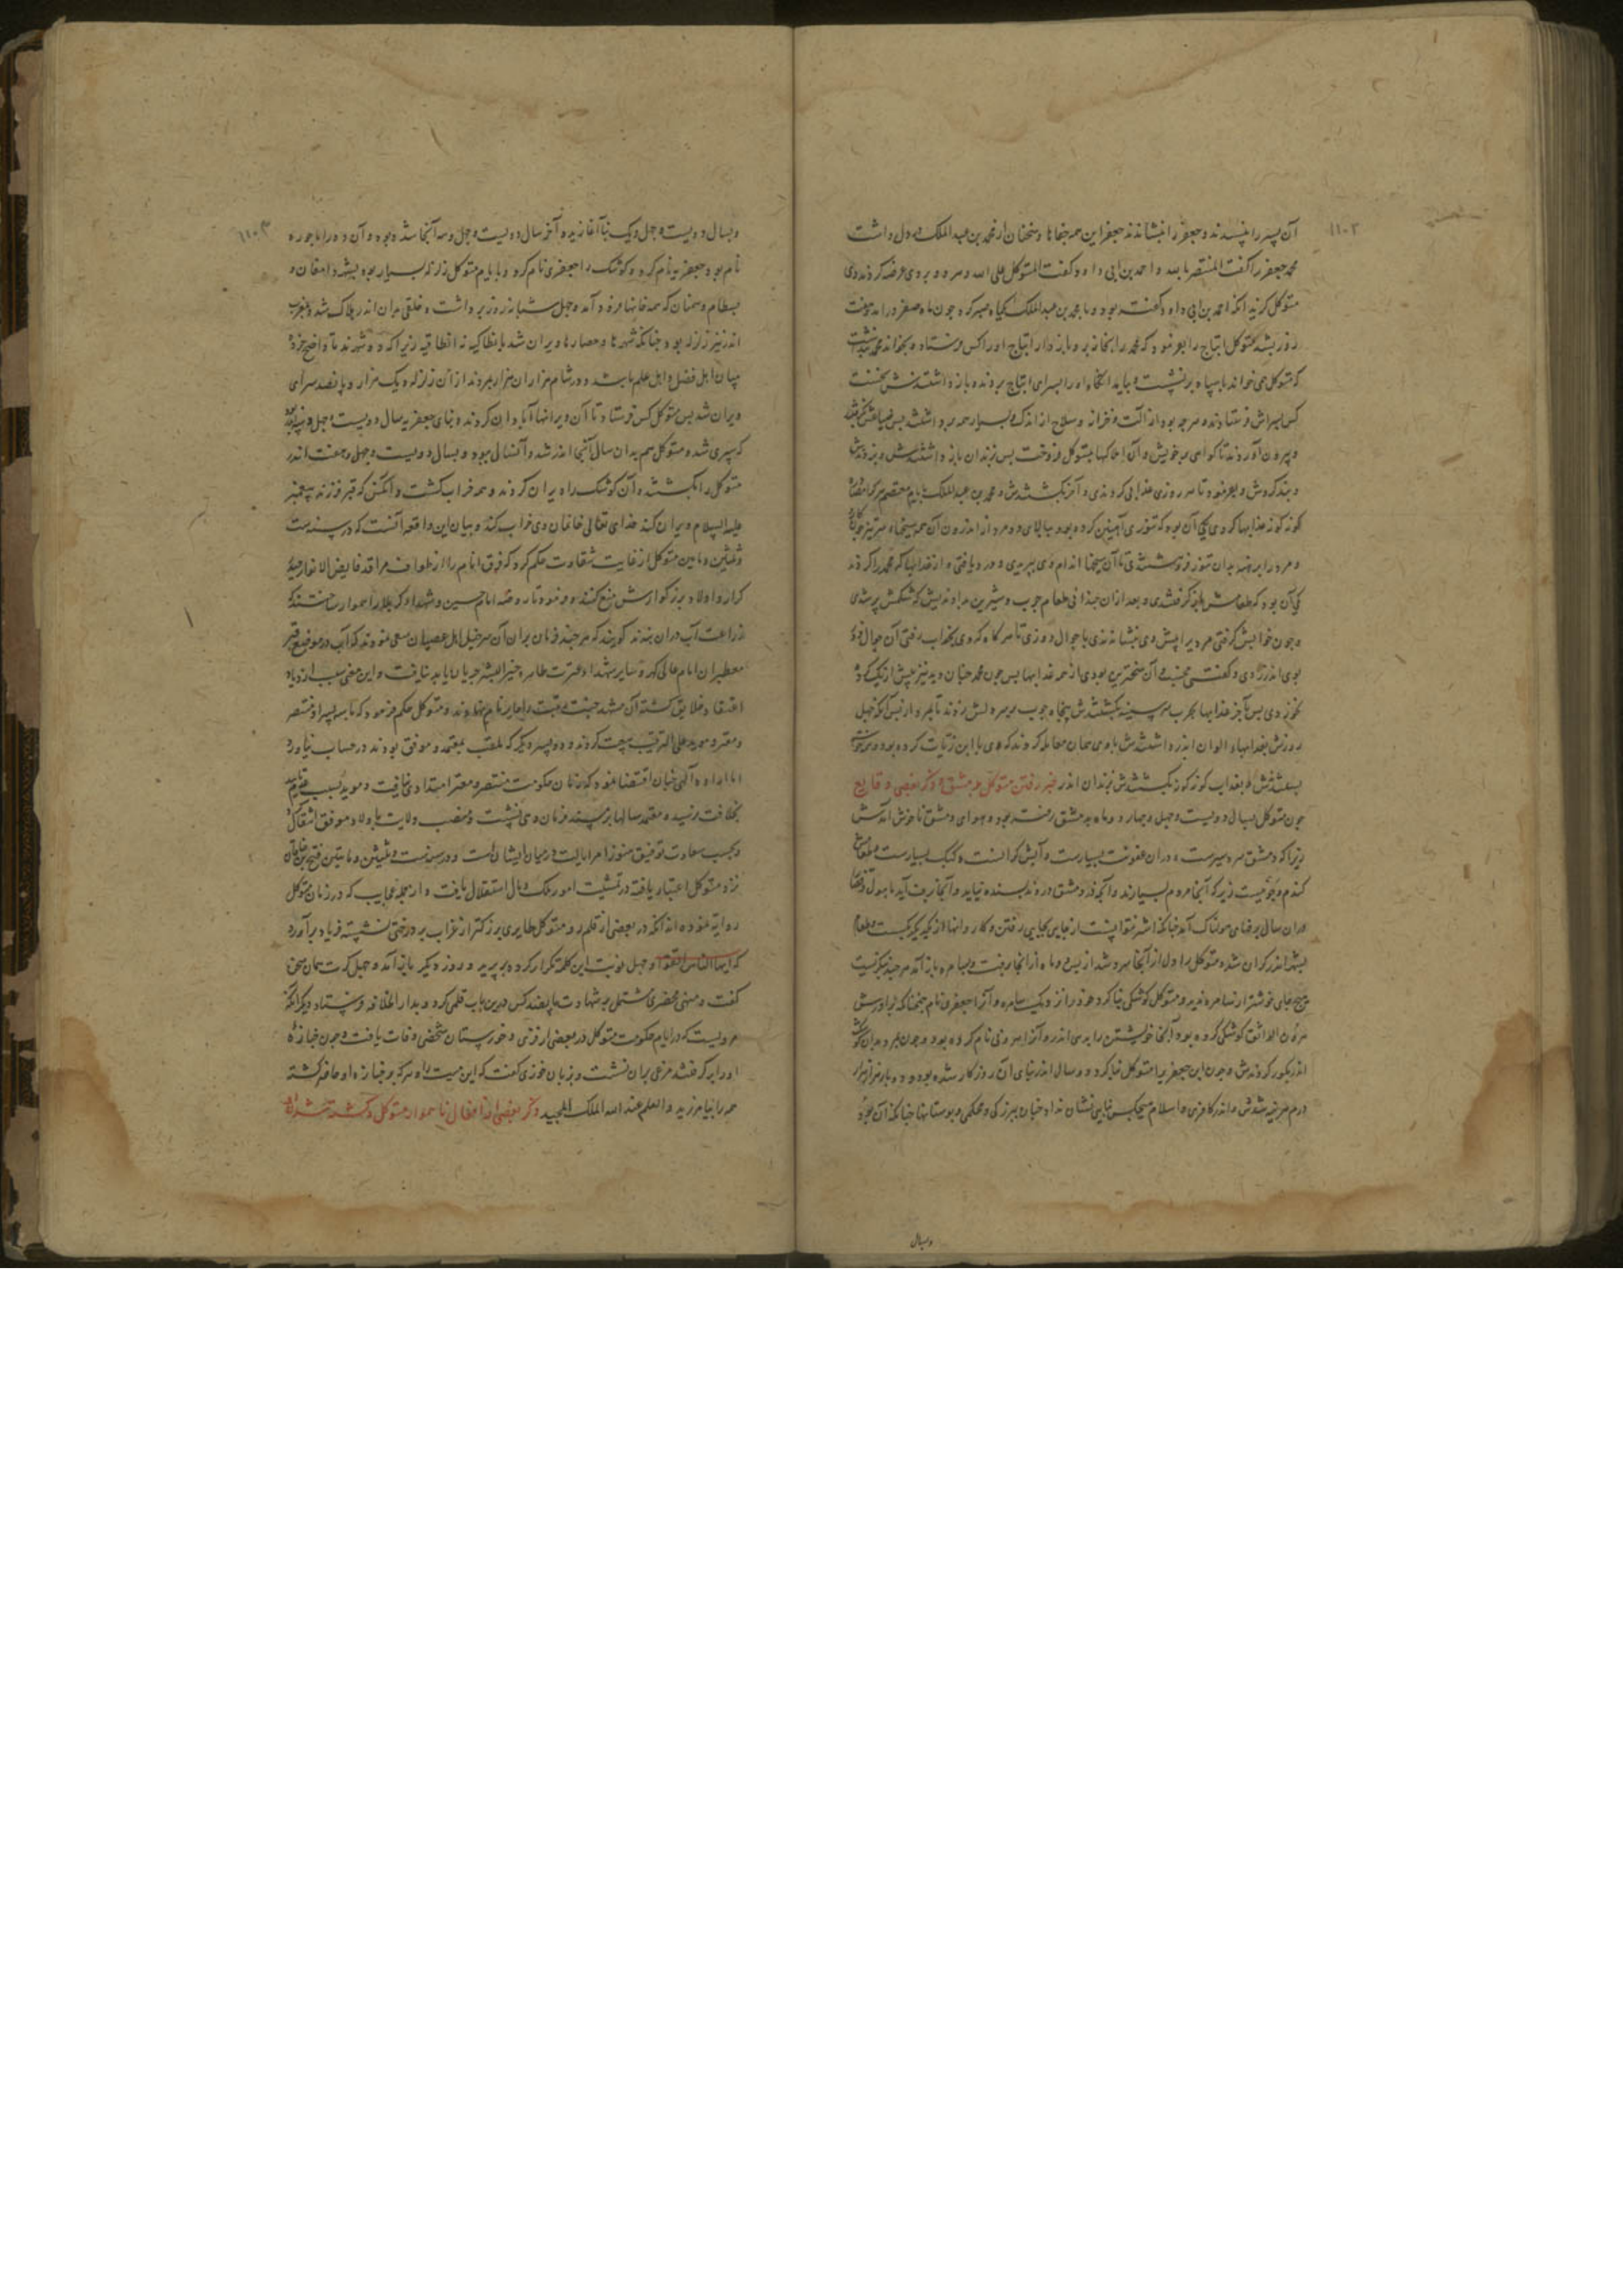 ۱۱۰۲
آن پسر را نپسندند و جعفر را بنشاندند جعفر این همه جفاها و سخنان از محمد بن عبد الملک در دل داشت
محمد جعفر را گفت المنتصر بالله و احمد بن ابی داود گفت المتوکل علی الله و مردود بر وی عرضه کردند وی
متوکل گزید آنکه احمد بن ابی داود گفته بود و با محمد بن عبد الملک یکماه صبر کرد چون ماه صفر در آمد هفت
روز بشد متوکل ایتاخ را بفرمود که محمد را بخانه بر و باز دار ایتاخ او را کس فرستاد و بخواند محمد
که متوکل همی خواند با سپاه بر نشست و بیامد آنگاه او را بسرای ایتاخ بردند و باز داشتندش نخست
کس بسراش فرستادند و هر چه بود از آلت و خزانه و سلاح از اندک و بسیار همه برداشتند پس
و بیرون آوردند تا گواهی بر خویش و آن املاکها بمتوکل فروخت پس بزندان باز داشتندش و
و بند کردش و بفرمود تا هر روزی عذابی کردندی و آخر بکشتندش و محمد بن عبد الملک بایام معتصم هر کرا
گونه گونه عذابها کردی یکی آن بود که تنوری آهنین کرده بود ببالای مردم و از اندرون آن همه میخهاء سرتیز
و مرد را برهنه بدان تنور فرو هشتندی تا آن میخها اندام وی ببریدی و درد یافتی و از عذابها که محمد را کردند
یکی آن بود که طعامش باز گرفتندی و بعد از آن چندانی طعام چرب و شیرین بدادندیش که شکمش پر شدی
و چون خوابش گرفتی مردی پیش وی بنشاندندی با جوال دوزی تا هر گاه که وی بخواب رفتی آن جوال دوز
بوی اندر زدی و گفتی مخسب و آن سختترین بودی از همه عذابها پس چون محمد چنان دید نیز بیش از یک گرده
نخوردی پس بآخر عذابها بچرب بر سینه بکشتندش پنجاه چوب بر سر دلش زدند تا بمرد و از پس آنکه چهل
روزش بعذابهاء الوان اندر داشتندش با وی همان معامله کردند که وی با ابن زیات کرده بود
بکشتندش و بعذاب گونه گونه بکشتندش بزندان اندر خبر رفتن متوکل بدمشق و ذکر بعضی وقایع
چون متوکل بسال دویست و چهل و چهار دو ماه بدمشق رفته بود و هوای دمشق ناخوش آمدش
زیرا که دمشق سردسیرست و در آن عفونت بسیارست و آبش گرانست و کیک بسیارست و
گندم و جو نیست زیرا که آنجا مردم بسیارند و آنچه در دمشق درودند بسنده نیاید و آنجا برف آید با هول
در آن سال برفهای هولناک آمد چنانکه اشتر نتوانست از جایی بجایی رفتن و کاروانها از یکدیگر بگسست و طعام
بشهر اندر گران شد و متوکل را دل از آنجا سرد شد از پس دو ماه از آنجا برفت و بسامره باز آمد هر چند بنگریست
هیچ جای خوشتر از سامره ندید و متوکل کوشکی بنا کرد خود را نزدیک سامره و آنرا جعفری نام همچنانکه برادرش
هرون الواثق کوشکی کرده بود و آنجا خویشتن را بسرای اندر و آنرا هرونی نام کرده بود و چون بمرد بدان کوشک
اندر بگور کردندش و چون این جعفریه را متوکل بنا کرد دو سال اندر بنای آن روزگار شده بود و دو بار هزار هزار
درم هزینه شدش و اندر کافری و اسلام هیچکس بنایی نشان نداد چنان ببزرگی و محکمی و بوستانها چنانکه آن بود
وبسال
۱۱۰۳
وبسال دویست و چهل و یک بنا آغازید و آخر سال دویست و چهل و سه آنجا شده بود و آن ده را ماحوره
نام بود و جعفریه نام کرد و کوشک را جعفری نام کرد و بایام متوکل زلزله بسیار بود بشهر دامغان و
بسطام و سمنان که همه خانها فرود آمد و چهل شبانروز برداشت و خلقی بدان اندر هلاک شد و بمغرب
اندر نیز زلزله بود چنانکه شهرها و حصارها ویران شد بانطاکیه نه انطاقیه زیرا که دو شهرند تا واضح گردد
میان اهل فضل و اهل علم باشد و در شام هزاران هزار بمردند از آن زلزله و یک هزار و پانصد سرای
ویران شد پس متوکل کس فرستاد تا آن ویرانها آبادان کردند و بنای جعفریه سال دویست و چهل و
که سپری شد و متوکل هم بدان سال آنجا اندر شد و آنسال ببود و بسال دویست و چهل و هفت اندر
متوکل را بکشتند و آن کوشک را ویران کردند و همه خراب گشت و آنکس که قبر فرزند پیغمبر
علیه السلام ویران کند خدای تعالی خانمان وی خراب کند و بیان این واقعه آنست که در سنه ست
و ثلثین و مأتین متوکل از غایت شقاوت حکم کرد که فرق انام را از طواف مراقد فایض الانوار حیدر
کرار و اولاد بزرگوارش منع کنند و فرمود تا روضه امام حسین و شهداء کربلا را هموار ساختند که
زراعت آب در آن بندند گویند که هر چند فرمان بران آن سر خیل اهل عصیان سعی نمودند که آب در موضع قبر
معطر آن امام عالی گهر و سایر شهدا و عترت طاهره خیر البشر جریان یابد نیافت و این معنی سبب ازدیاد
اعتقاد خلایق گشته آن مشهد جنت مرتبت را حایر نام نهادند و متوکل حکم فرمود که با سه پسر او منتصر
و معتز و مؤید علی الترتیب بیعت کردند و دو پسر دیگر که ملقب بمعتمد و موفق بودند در حساب نیاورد
اما اراده الهی چنان اقتضا نمود که زمان حکومت منتصر و معتز امتدادی نیافت و مؤید بسبب
بخلافت نرسید و معتمد سالها بر مسند فرمان دهی نشست و منصب ولایت باولاد موفق انتقال
و بحسب سعادت توفیق هنوز امر ایالت در میان ایشان است و در سنه ست و ثلثین و مایتین فتح بن خاقان
نزد متوکل اعتبار یافته در تمشیت امور ملک و مال استقلال یافت و از جمله عجایب که در زمان متوکل
روایت نموده اند آنکه در بعضی از قلمرو متوکل طایری بزرگتر از غراب بر درختی نشسته فریاد بر آورد
که ایها الناس اتقوا و چهل نوبت این کلمه تکرار کرده بپرید و روز دیگر باز آمد و چهل کرت همان سخن
گفت و منهی محضری مشتمل بر شهادت پانصد کس در این باب قلمی کرد و بدار الخلافه فرستاد دیگر آنکه
مرویست که در ایام حکومت متوکل در بعضی از قری خورستان شخصی وفات یافت و چون جنازه
او را بر گرفتند مرغی بر آن نشست و بزبان خوزی گفت که این میت را و هر که بر جنازه او حاضر گشته
همه را بیامرزید والعلم عند الله الملک المجید ذکر بعضی از افعال ناهموار متوکل و کشته شدن او